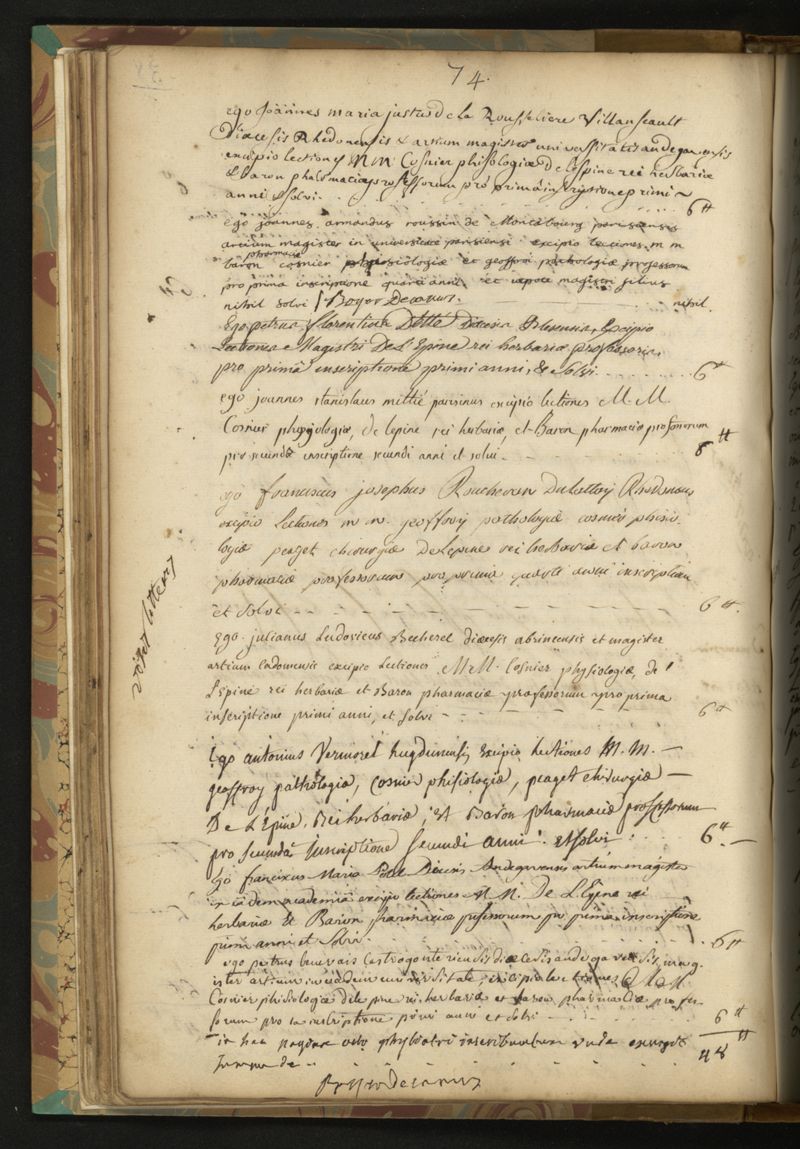 74.
ego Joannes maria justus de la Rousseliere Villanseault
Diœcesis Rhedonensis & artium magister universitatis andegavensis
excipio lectiones M M Cosnier phisologiæ De l'espine rei herbariæ
& Baron pharmaciæ professorum pro prima inscriptione primi
anni & solvi. 6#
ego joannes armandus roussin de Montabourg parisiensis
artium magister in universitate parisiensi excipio lectiones m m
baron pharmaciæ cosnier physiologiæ et geoffroi pathologiæ professorum
pro prima inscriptione quarti anni et utpote magistri filius
nihil solvi / Boyer Decanus. nihil.
Ego petrus florentius Detté Diœcesis Blesensis, Excipio
Lectiones Magistri De L'Epine rei herbariæ professoris,
pro primâ inscriptione primi anni, & solvi 6#
ego joannes stanislaus mittié parisinus excipio lectiones M. M.
Cosnier physiologiæ, de lepine rei herbariæ, et Baron pharmaciæ professorum
pro secunda inscriptione secundi anni et solvi 6#
ego franciscus josephus Dulattay Rhedonæus
excipio Lectiones m m. geoffroy pathologiæ cosnier phisio
logiæ peaget chirurgiæ De lepine rei herbariæ et baron
pharmaciæ professorum pro prima quarti anni inscriptione
et solvi 6#.
vidit litteras
Ego julianus Ludovicus Becherel diœcesis abrincensis et magister
artium cadomensis excipio Lectiones M.M. Cosnier physiologiæ, de
L'epine rei herbariæ et Baron pharmaciæ professorum pro prima
inscriptione primi anni, et solvi 6#
Ego antonius Vermorel lugdunensis excipio lectiones M. M.
geoffroy pathologiæ, Cosnier phisiologiæ, peaget chirurgiæ
De L'Epine Rei herbariæ, et Baron pharmaciæ professorum
pro secundâ Inscriptione secundi anni. et solvi 6#.
Ego franciscus Maria Diœcesis Andegavensis artium magister
in eadem academiâ excipio lectiones M M. De L'Epine rei
herbariæ Et Baron pharmaciæ professorum pro prima inscriptione
primi anni et solvi 6#
ego petrus diœcesis andegavensis, mag
ister artium in eadem universitate, excipio lectiones M M
Cosnier phisiologiæ de lepine rei herbariæ et baron pharmaciæ profes
sorum pro 1a inscriptione primi anni et solvi 6#
in hac pagina octo phyliatri inscribuntur unde exurgit
summa de 48#
Boyer Decanus